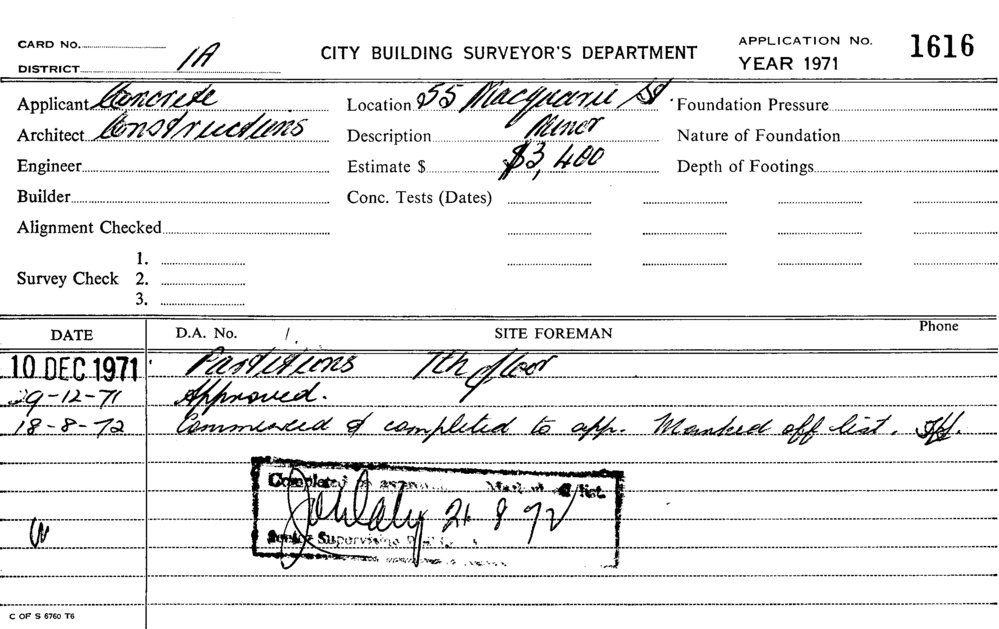 CARD No. CITY BUILDING SURVEYOR'S DEPARTMENT APPLICATION No. 1616
DISTRICT 1A YEAR 1971
Applicant Concrete Location 55 Macquarie St. Foundation Pressure
Architect Constructions Description Minor Nature of Foundation
Engineer Estimate $ $3,400 Depth of Footings
Builder Conc. Tests (Dates)
Alignment Checked
1.
Survey Check 2.
3.
DATE D.A. No. / . SITE FOREMAN Phone
10 DEC 1971 Partitions 7th floor
29-12-71 Approved.
18-8-72 Commenced & completed to app. Marked off list.
Completed to Marked off list.
21 8 72
Senior Supervising
C OF S 6760 T6